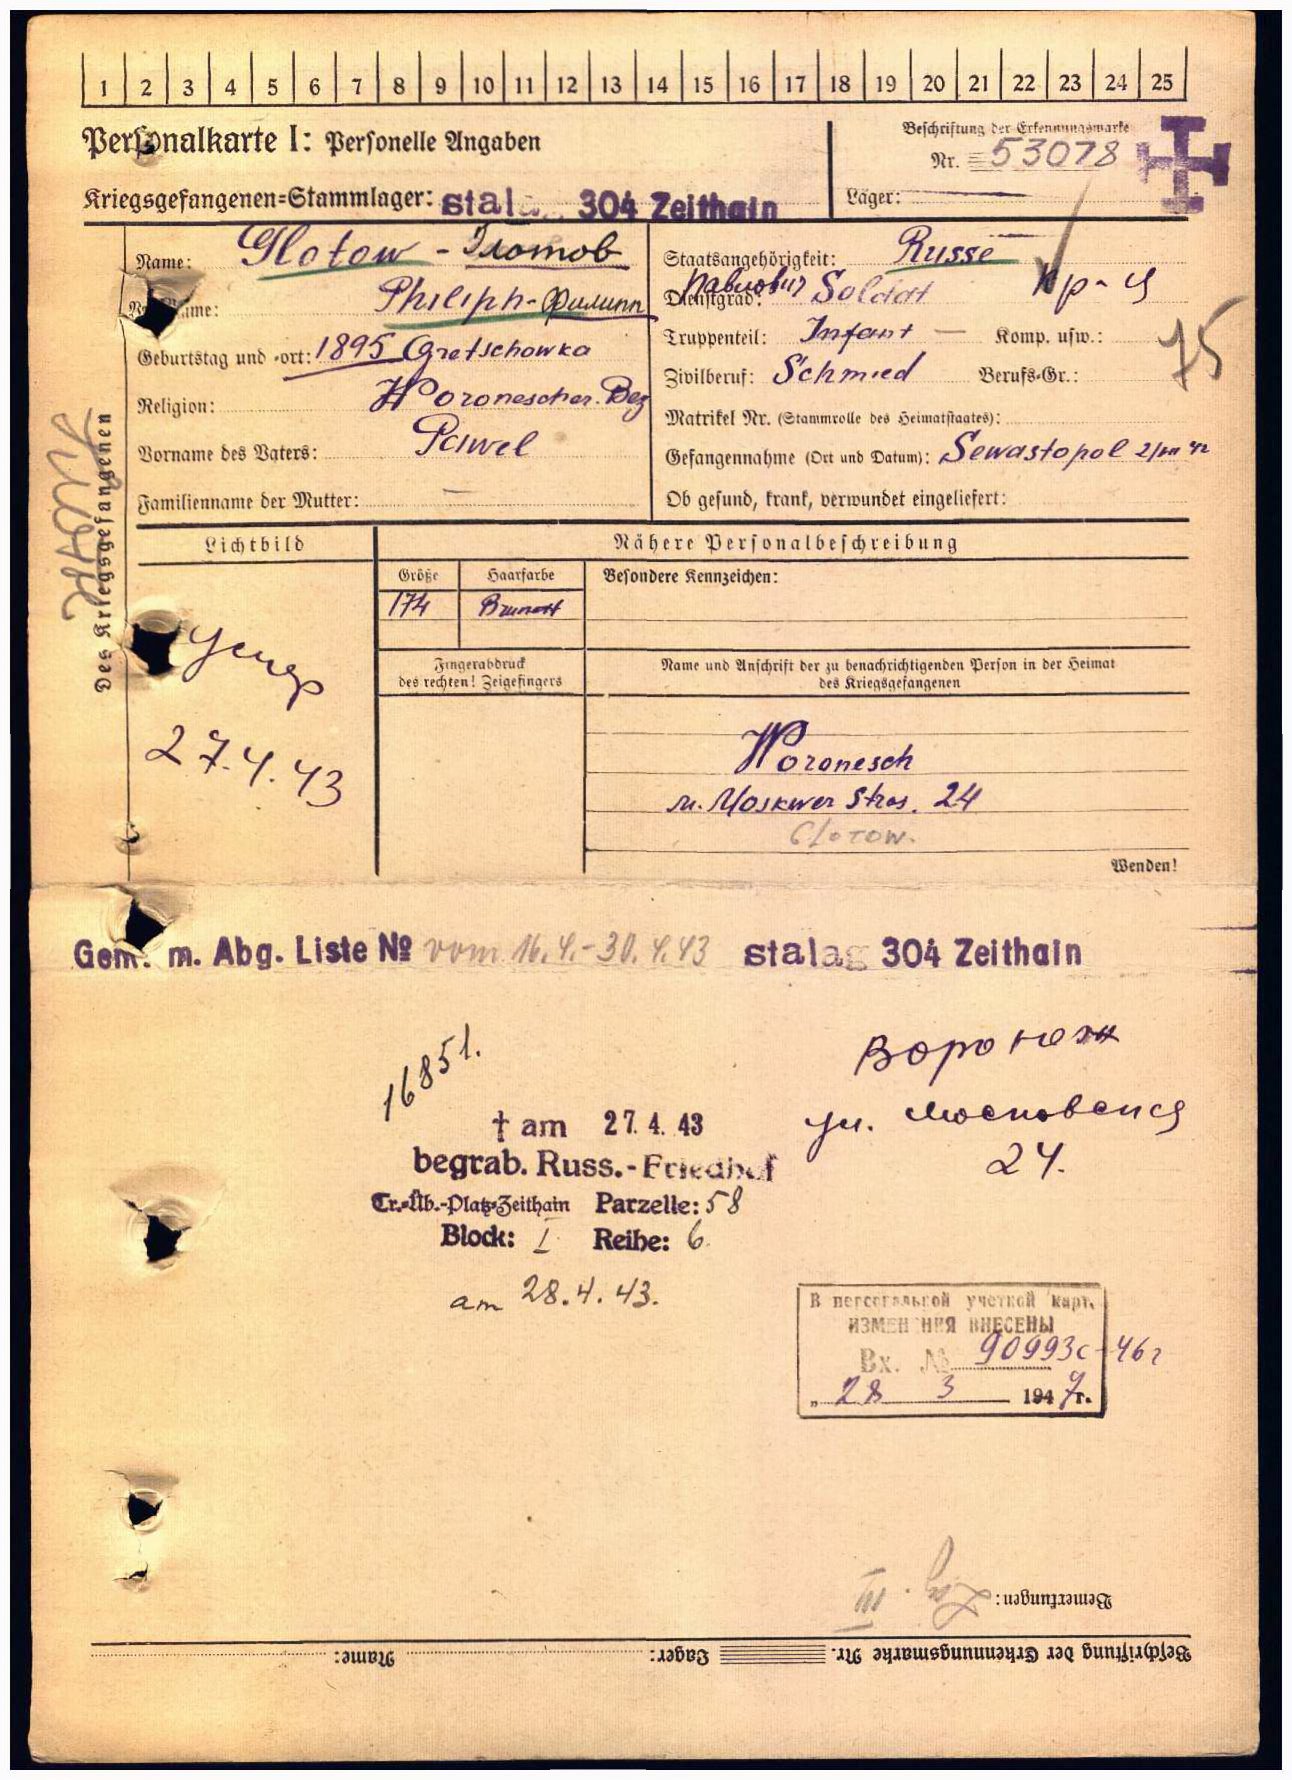 1 2 3 4 5 6 7 8 9 10 11 12 13 14 15 16 17 18 19 20 21 22 23 24 25
Personalkarte I: Personelle Angaben
Kriegsgefangenen=Stammlager: stalag 304 Zeithain
Beschriftung der Erkennungsmarke
Nr. 53078
Läger:
Des Kriegsgefangenen
Name: Glotow - Глотов
Vorname: Philiph - Филипп
Geburtstag und -ort: 1895 Gretschowka
Religion: Woronescher. Bez
Vorname des Vaters: Pawel
Familienname der Mutter: —
Staatsangehörigkeit: Russe
Павлович кр-ц
Dienstgrad: Soldat
Truppenteil: Infant — Komp. usw.:
75
Zivilberuf: Schmied Berufs-Gr.:
Matrikel Nr. (Stammrolle des Heimatstaates):
Gefangennahme (Ort und Datum): Sewastopol 2/VII 42
Ob gesund, krank, verwundet eingeliefert:
Lichtbild
Nähere Personalbeschreibung
Größe Haarfarbe Besondere Kennzeichen:
174 Brunett
Fingerabdruck
des rechten! Zeigefingers
Name und Anschrift der zu benachrichtigenden Person in der Heimat
des Kriegsgefangenen
умер
27.4.43
Woronesch
Moskwer Stras. 24
Glotow.
Wenden!
Gem. m. Abg. Liste № vom 16.4.-30.4.43 stalag 304 Zeithain
16851.
Воронеж
ул. Московская
24.
† am 27. 4. 43
begrab. Russ.-Friedhof
Tr.=Üb.-Platz=Zeithain Parzelle: 58
Block: I Reihe: 6
am 28.4.43.
В персональной учетной карт.
ИЗМЕНЕНИЯ ВНЕСЕНЫ
Вх. № 90993с-46г
„ 28 3 1947г.
Bemerkungen: Lag. III
Beschriftung der Erkennungsmarke Nr. Lager: Name: